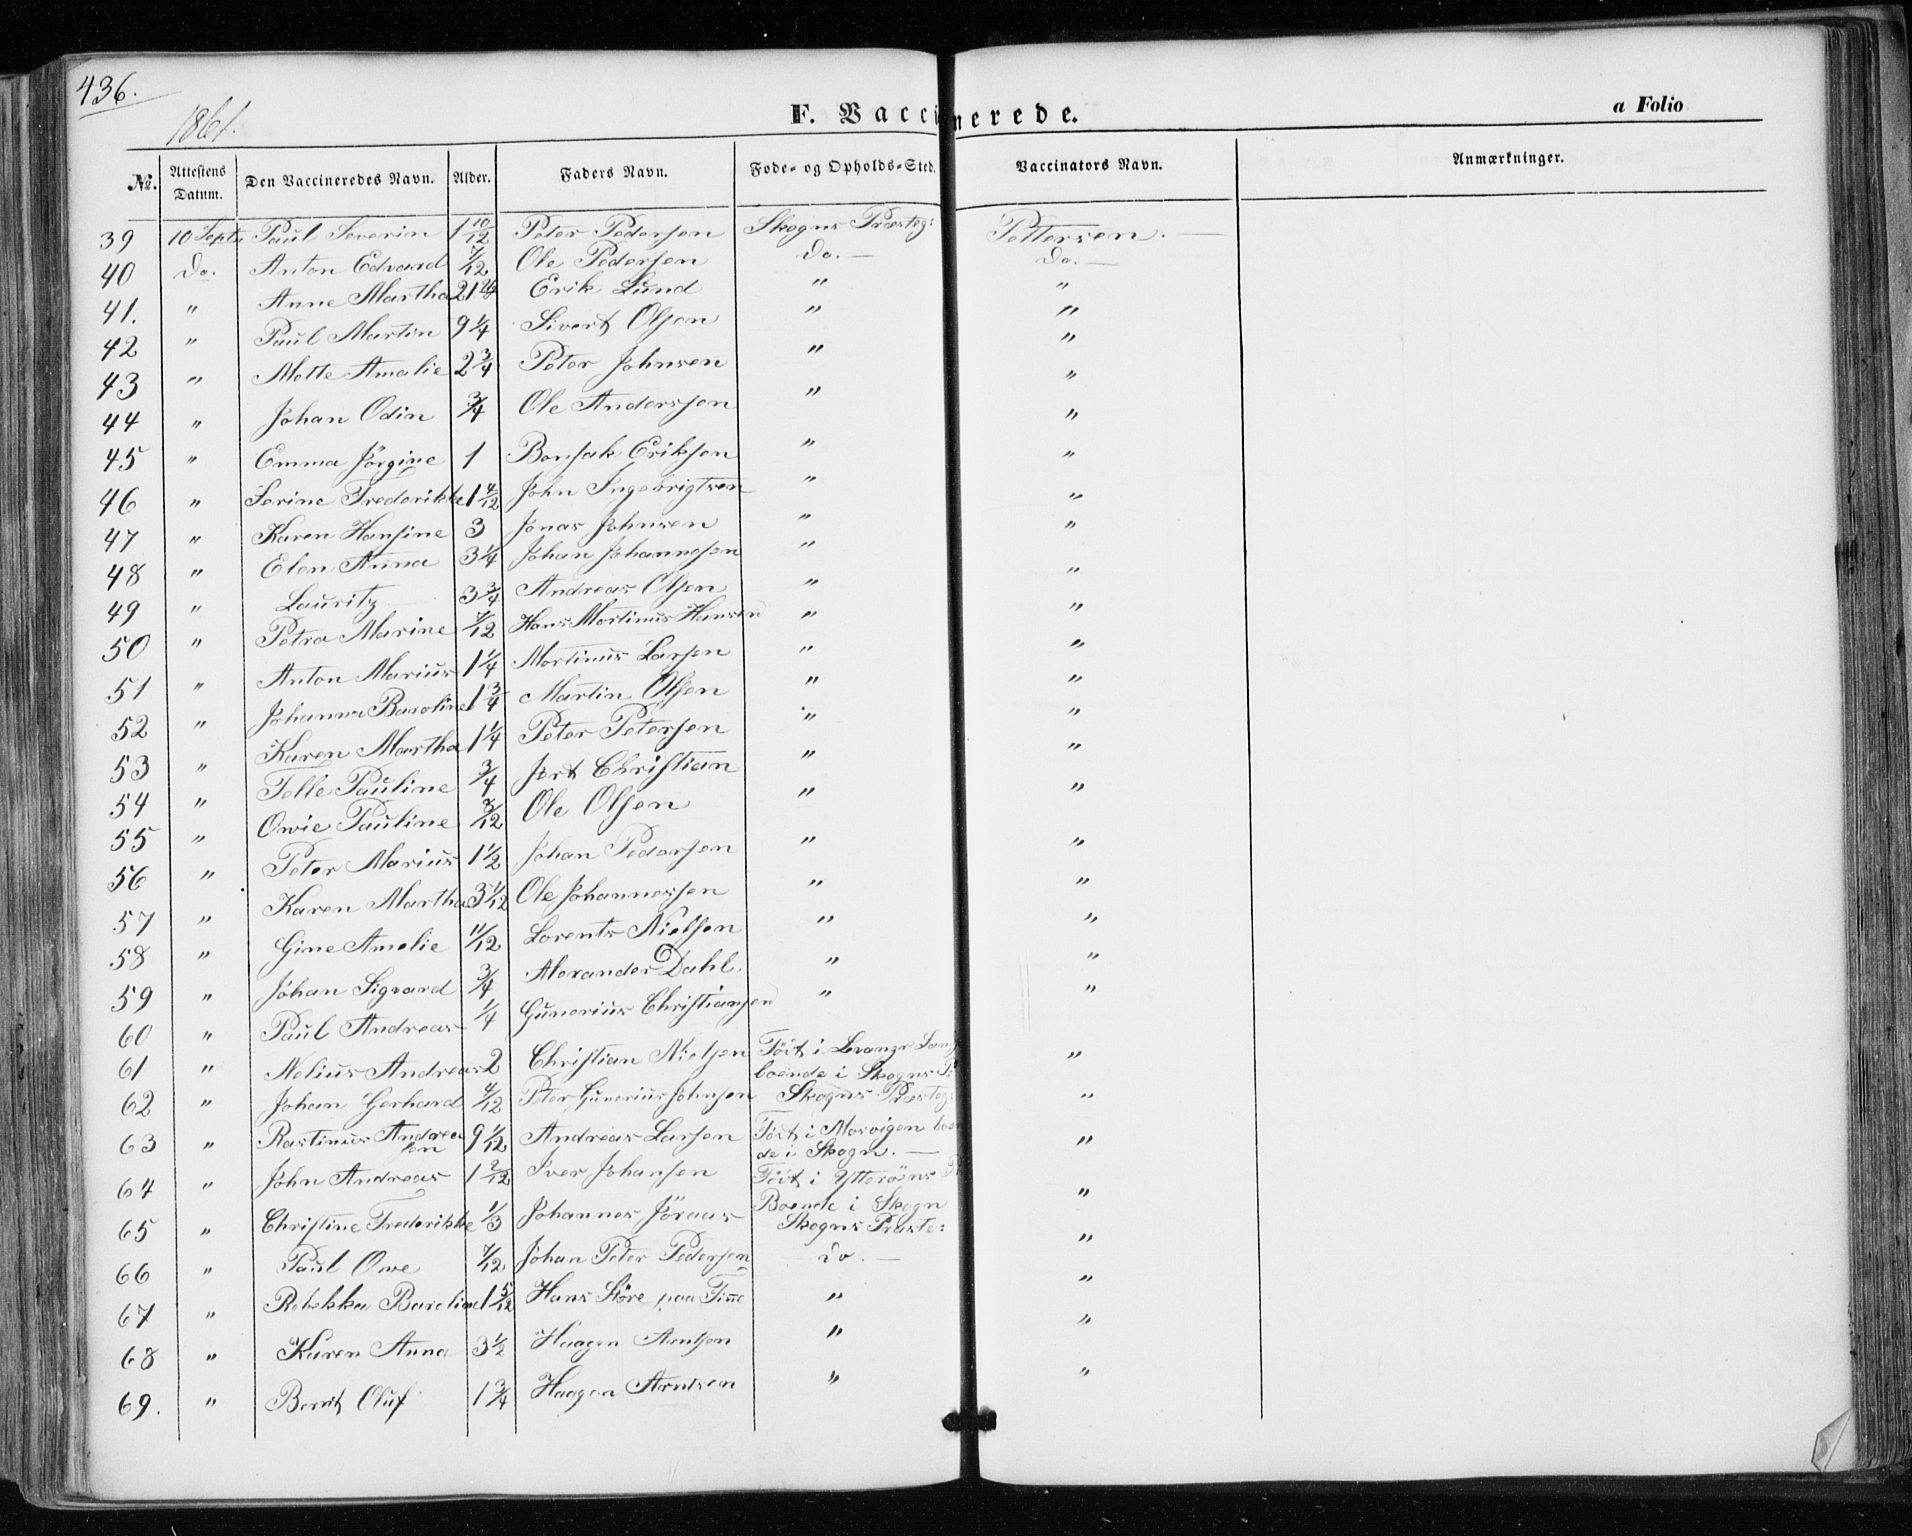 436.
1861.
F. Vaccinerede.
a Folio
No. Attestens Datum. Den Vaccineredes Navn. Alder. Faders Navn. Føde- og Opholds-Sted. Vaccinators Navn. Anmærkninger.
39 10 Septr Paul Severin 1 10/12 Peter Pedersen Skogns Præsteg: Pettersen. —
40 Do. Anton Edvard 7/12 Ole Pedersen Do. — Do. —
41. " Anne Martha 21 Erik Lund " "
42 " Paul Martin 9 1/4 Sivert Olsen " "
43 " Mette Amalie 2 3/4 Peter Johnsen " "
44 " Johan Odin 3/4 Ole Anderssen " "
45 " Emma Jörgine 1 Bonsak Eriksen " "
46 " Serine Frederikke 1 4/12 John Ingebrigtsen " "
47 " Karen Hansine 3 Jonas Johnsen " "
48 " Elen Anna 3 1/4 Johan Johannesen " "
49 " Lauritz 3 3/4 Andreas Olsen " "
50 " Petra Marine 7/12 Hans Mortinus Hansen " "
51 " Anton Marius 1 1/4 Mortinus Larsen " "
52 " Johanna Baroline 1 3/4 Martin Olsen " "
53 " Karen Martha 1 1/4 Peter Petersen " "
54 " Pauline 3/4 Christian " "
55 " Owie Pauline /12 Ole Olsen " "
56 " Peter Marius 1 1/2 Johan Pedersen " "
57 " Karen Martha 3 1/12 Ole Johannessen " "
58 " Gine Amalie 11/12 Lorents Nielsen " "
59 " Johan Sigvard 3/4 Alexander Dahl. " "
60 " Paul Andreas 1/4 Gunerius Christiansen " "
61 " Nelius Andreas 2 Christian Nielsen Födt i Levanger "
boende i Skogns
62 " Johan Gerhard 4/12 Peter Gunerius Johnsen Skogns Præsteg: "
63 " Rastinus Andrea 9 1/12 Andreas Larsen Födt i Mosvigen boen "
sen de i Skogn. —
64 " John Andreas 1 2/12 Iver Johansen Födt i Ytteröens "
Boende i Skogn
65 " Christine Frederikke 1/3 Johannes Skogns Præste: "
66 " Paul Owe 7/12 Johan Peter Pedersen Do. — "
67 " Rebekka Baroline 1 5/12 Hans Störe paa Finne " "
68 " Karen Anna 3 1/2 Haagen Arntsen " "
69. " Bernt Oluf 1 3/4 Haagen Arntsen " "